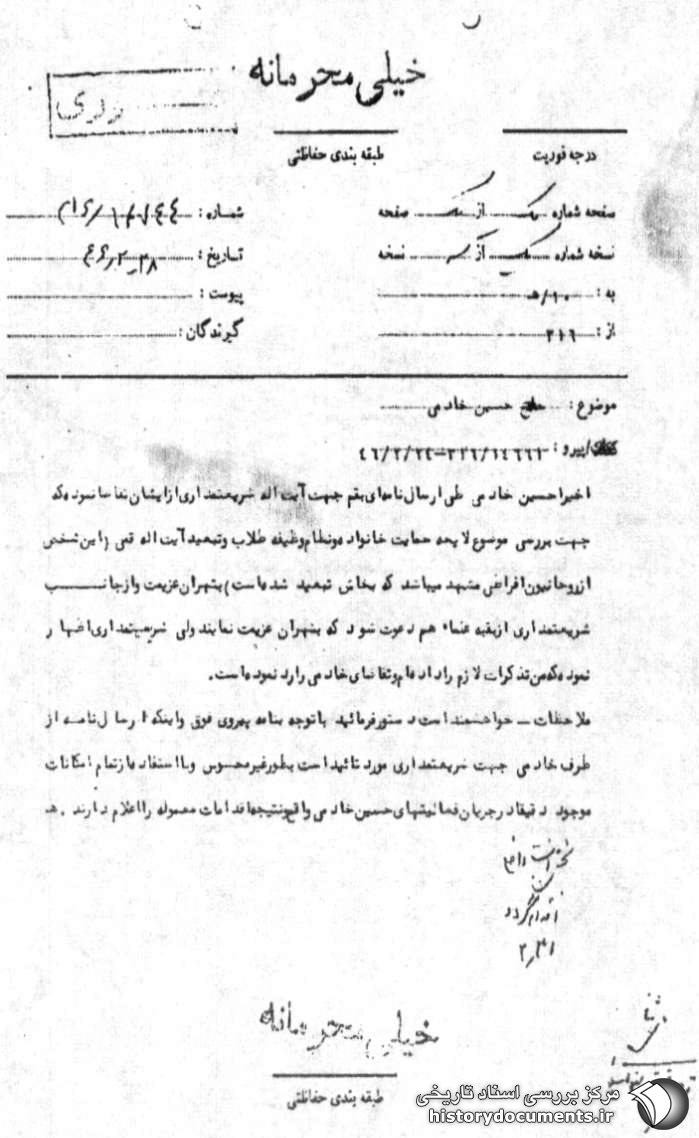 خیلی محرمانه
درجه فوریت
طبقه بندی حفاظتی
صفحه شماره یک از یک صفحه
شماره :
نسخه شماره یک از نسخه
تاریخ : ۴۶٫۲٫۲۸
به : ۱۰/هـ
پیوست :
از : ۳۱۶
گیرندگان :
موضوع : حسین خادمی
پیرو : ۳۲۶/۱٤٦٦۱-۴۶/۲/۲٤
اخیرا حسین خادمی طی ارسال نامه‌ای بقم جهت آیت اله شریعتمداری از ایشان تقاضا نموده که
جهت بررسی موضوع لایحه حمایت خانواده و نظام وظیفه طلاب و تبعید آیت اله قمی (این شخص
از روحانیون افراطی مشهد میباشد که بخاش تبعید شده است) بتهران عزیمت و از جانب
شریعتمداری از بقیه علماء هم دعوت شود که بتهران عزیمت نمایند ولی شریعتمداری اظهار
نموده که من تذکرات لازم را داده‌ام و تقاضای خادمی را رد نموده است.
ملاحظات ـ خواهشمند است دستور فرمائید با توجه بنامه پیروی فوق و اینکه ارسال نامه از
طرف خادمی جهت شریعتمداری مورد تائید است بطور غیر محسوس و با استفاده از تمام امکانات
موجود دقیقا در جریان فعالیتهای حسین خادمی واقع و نتیجه اقدامات معموله را اعلام دارند . هـ
اقدام گردد
خیلی محرمانه
طبقه بندی حفاظتی
مرکز بررسی اسناد تاریخی
historydocuments.ir